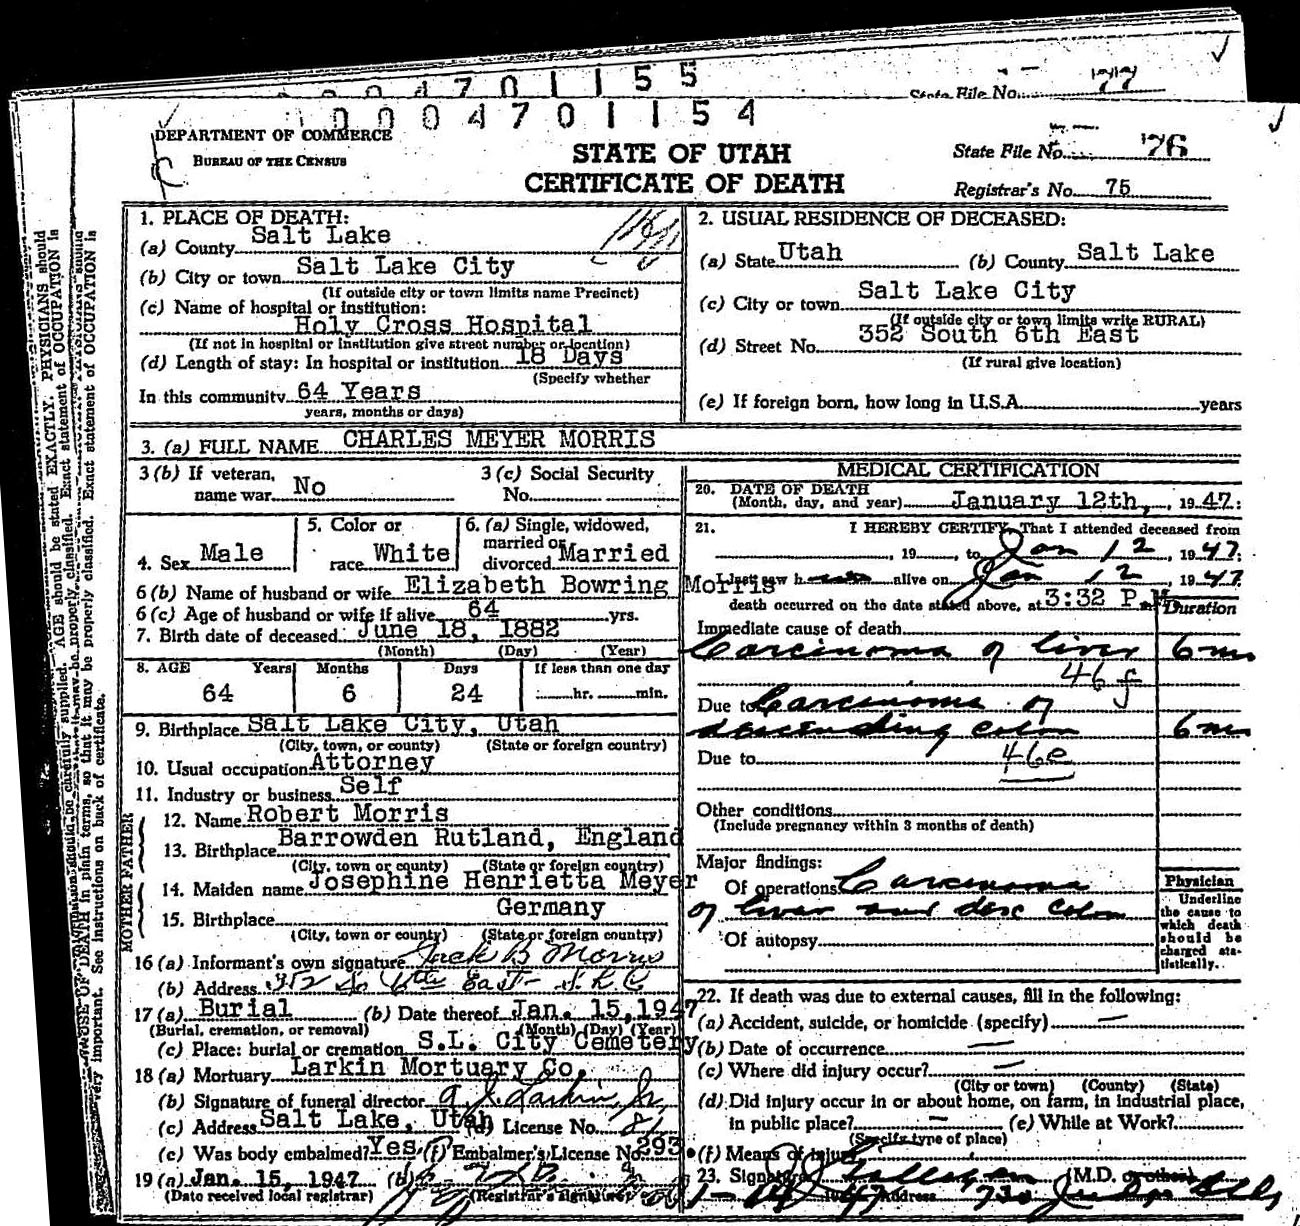 0 0 0 4 7 0 1 1 5 5
State File No. 77
0 0 0 4 7 0 1 1 5 4
DEPARTMENT OF COMMERCE
BUREAU OF THE CENSUS
STATE OF UTAH
CERTIFICATE OF DEATH
State File No. 76
Registrar's No. 75
1. PLACE OF DEATH:
(a) County Salt Lake
(b) City or town Salt Lake City
(If outside city or town limits name Precinct)
(c) Name of hospital or institution:
Holy Cross Hospital
(If not in hospital or institution give street number or location)
(d) Length of stay: In hospital or institution 18 Days
(Specify whether
In this community 64 Years
years, months or days)
2. USUAL RESIDENCE OF DECEASED:
(a) State Utah (b) County Salt Lake
(c) City or town Salt Lake City
(If outside city or town limits write RURAL)
(d) Street No. 352 South 6th East
(If rural give location)
(e) If foreign born, how long in U.S.A. years
3. (a) FULL NAME CHARLES MEYER MORRIS
3 (b) If veteran, name war No
3 (c) Social Security No.
4. Sex Male
5. Color or race White
6. (a) Single, widowed, married or divorced Married
6 (b) Name of husband or wife Elizabeth Bowring Morris
6 (c) Age of husband or wife if alive 64 yrs.
7. Birth date of deceased June 18, 1882
(Month) (Day) (Year)
8. AGE Years Months Days If less than one day
64 6 24 hr. min.
9. Birthplace Salt Lake City, Utah
(City, town, or county) (State or foreign country)
10. Usual occupation Attorney
11. Industry or business Self
FATHER
12. Name Robert Morris
13. Birthplace Barrowden Rutland, England
(City, town or county) (State or foreign country)
MOTHER
14. Maiden name Josephine Henrietta Meyer
15. Birthplace Germany
(City, town or county) (State or foreign country)
16 (a) Informant's own signature Jack B Morris
(b) Address 352 So 6th East S.L.C
17 (a) Burial (b) Date thereof Jan. 15, 1947
(Burial, cremation, or removal) (Month) (Day) (Year)
(c) Place: burial or cremation S.L. City Cemetery
18 (a) Mortuary Larkin Mortuary Co.
(b) Signature of funeral director A. J. Larkin, Jr.
(c) Address Salt Lake, Utah (d) License No. 81
(e) Was body embalmed? Yes (f) Embalmer's License No. 293
19 (a) Jan. 15, 1947 (b)
(Date received local registrar) (Registrar's signature)
MEDICAL CERTIFICATION
20. DATE OF DEATH
(Month, day, and year) January 12th, 1947
21. I HEREBY CERTIFY, That I attended deceased from
, 19 , to Jan 12, 1947
I last saw h alive on Jan 12, 1947
death occurred on the date stated above, at 3:32 P.M.
Duration
Immediate cause of death
Carcinoma of liver 6 mos
46 f
Due to Carcinoma of
descending colon 6 mos
Due to 46e
Other conditions
(Include pregnancy within 3 months of death)
Major findings:
Of operations Carcinoma
of liver and desc colon
Of autopsy
Physician
Underline
the cause to
which death
should be
charged sta-
tistically.
22. If death was due to external causes, fill in the following:
(a) Accident, suicide, or homicide (specify) —
(b) Date of occurrence —
(c) Where did injury occur? —
(City or town) (County) (State)
(d) Did injury occur in or about home, on farm, in industrial place,
in public place? — (e) While at Work?
(Specify type of place)
(f) Means of Injury
23. Signature (M.D. or other)
Address 730 Judge Bldg
AGE should be stated EXACTLY. PHYSICIANS should
so that it may be properly classified. Exact statement of OCCUPATION is
very important. See instructions on back of certificate.